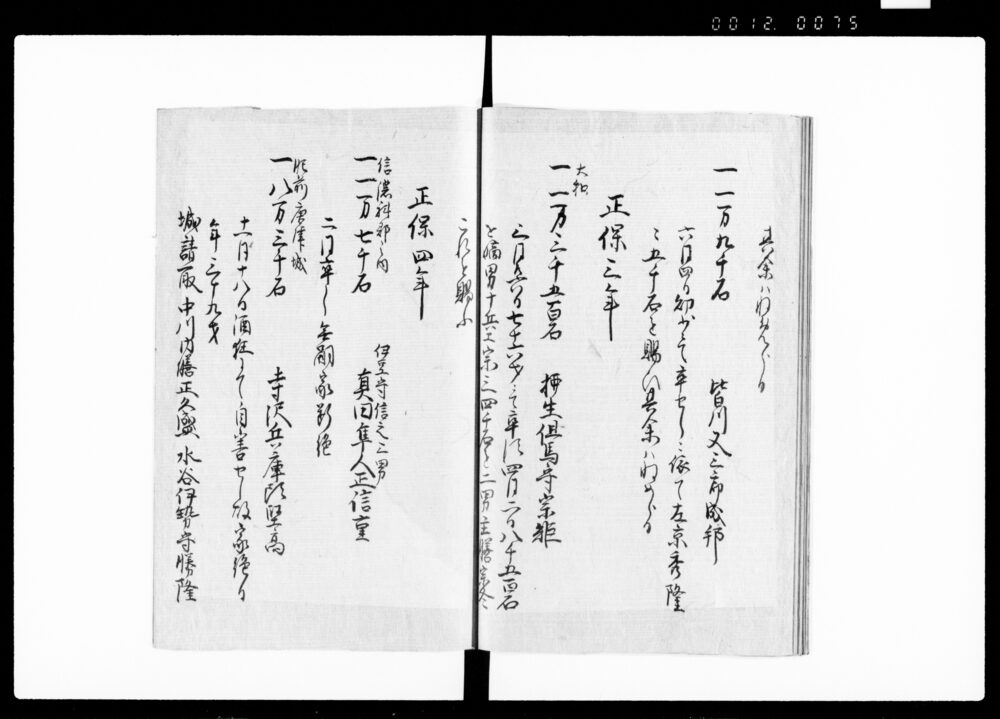 0012.0075
其余ハ収めらる
一一万九千石 皆川又三郎成郷
六月四日幼少ニて卒せしニ依て左京秀隆
ニ五千石を賜ハり其余ハ収めらる
正保三年
大和
一一万二千五百石 柳生但馬守宗矩
三月廿六日七十六才ニて卒す 四月二日八千五百石
を嫡男十兵エ宗三 四千石を二男主膳
これを賜ふ
正保四年
信濃 郡之内
一一万七千石 伊豆守信之三男 真田隼人正信重
二月卒し無嗣家断絶
肥前唐津城
一八万三千石 寺沢兵庫頭堅高
十一月十八日酒狂ニて自害せし故家絶る
年三十九才
城請取 中川内膳正久盛 水谷伊勢守勝隆